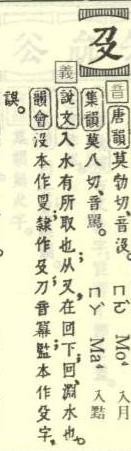 𠬛
音 唐韻莫勃切音沒。 ㄇㄛˋ Mo⁴ 入月
集韻莫八切,音罵。 ㄇㄚˋ Ma⁴ 入黠
義 說文入水有所取也;从又在囘下;囘,淵水也。
韻會沒本作𠬸;隸作𠬛;刀音冪;監本作殳字,
誤。